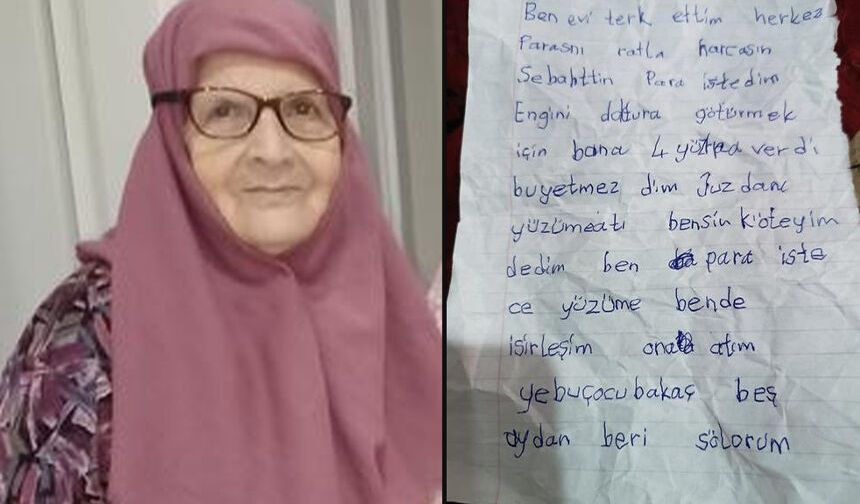 Ben evi terk ettim herkez
Parasnı ratla harcasın
Sebahttin Para istedim
Engini doktura götürmek
için bana 4 yüz verdi
buyetmez dim Juzdanı
yüzümeatı bensin k'öteyim
dedim ben para iste
ce yüzüme bende
isirleşim ona atım
yebuçocubakaç beş
aydan beri sölorum